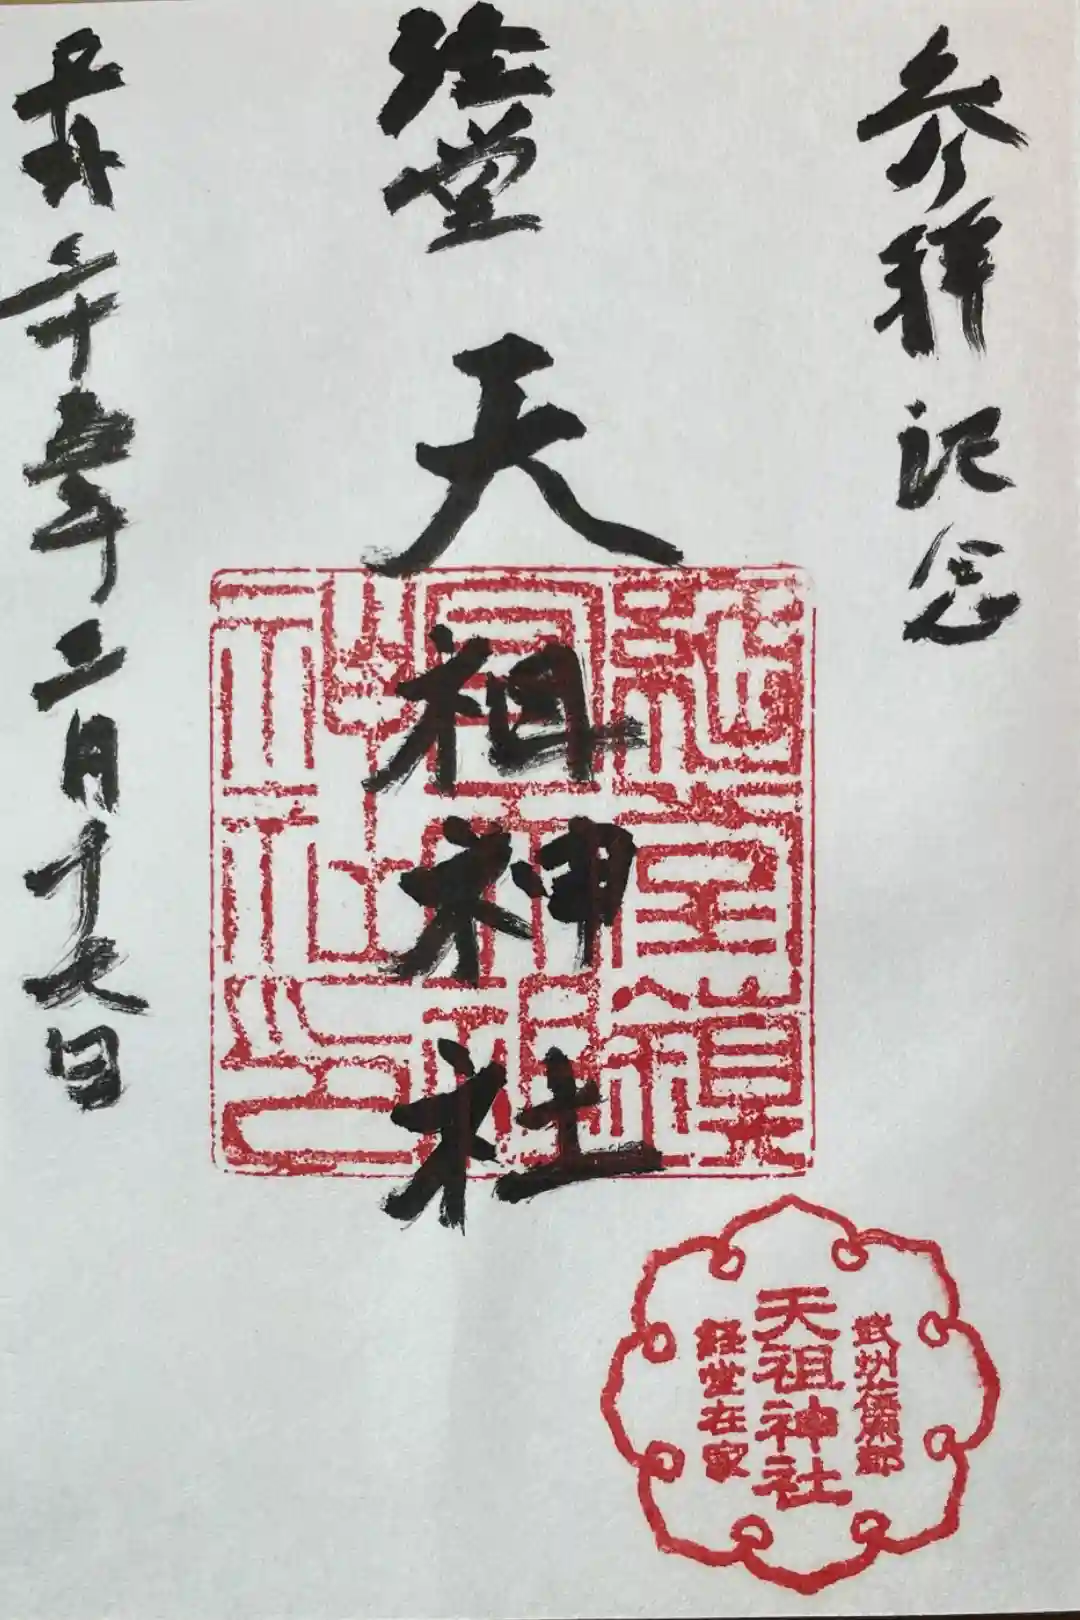 参拝記念
経堂
天祖神社
平成二十五年二月十七日
武州荏原郡
天祖神社
経堂在家